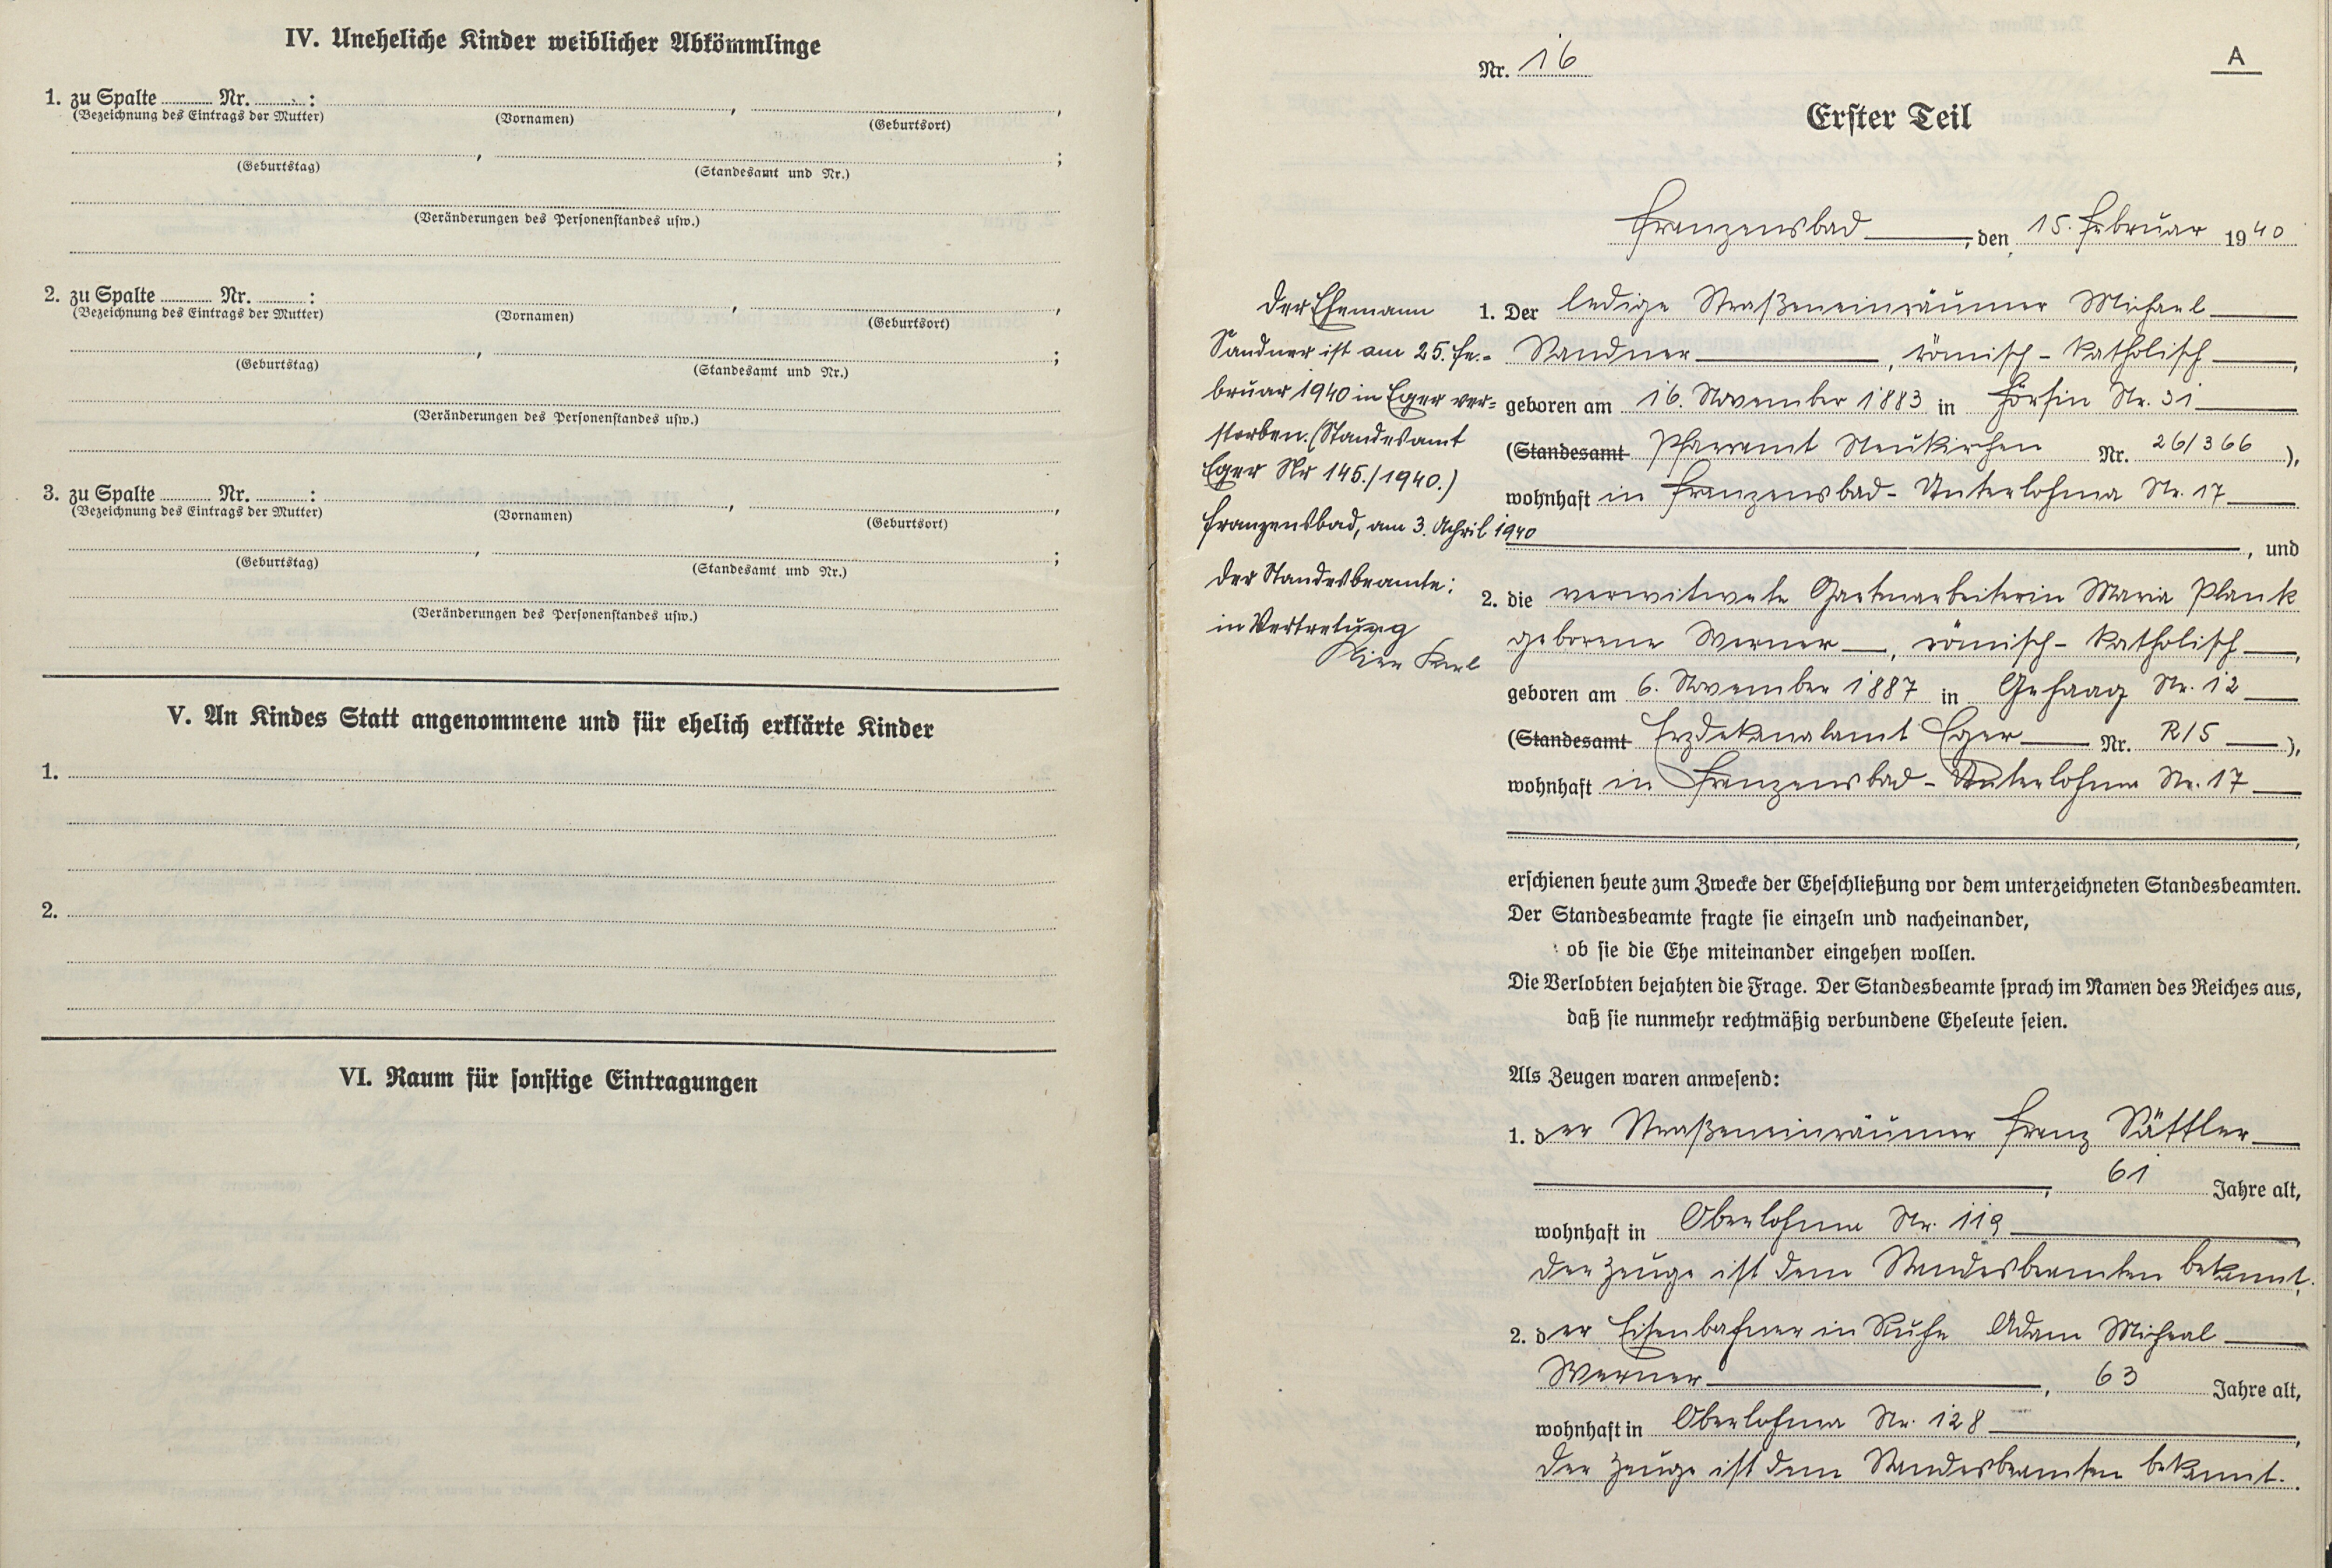 IV. Uneheliche Kinder weiblicher Abkömmlinge
1. zu Spalte ........ Nr. ........ :
(Bezeichnung des Eintrags der Mutter) (Vornamen) (Geburtsort)
(Geburtstag) (Standesamt und Nr.)
(Veränderungen des Personenstandes usw.)
2. zu Spalte ........ Nr. ........ :
(Bezeichnung des Eintrags der Mutter) (Vornamen) (Geburtsort)
(Geburtstag) (Standesamt und Nr.)
(Veränderungen des Personenstandes usw.)
3. zu Spalte ........ Nr. ........ :
(Bezeichnung des Eintrags der Mutter) (Vornamen) (Geburtsort)
(Geburtstag) (Standesamt und Nr.)
(Veränderungen des Personenstandes usw.)
V. An Kindes Statt angenommene und für ehelich erklärte Kinder
1.
2.
VI. Raum für sonstige Eintragungen
Nr. 16
A
Erster Teil
Franzensbad, den 15. Februar 1940
Der Ehemann
Sandner ist am 25. Fe-
bruar 1940 in Eger ver=
storben. (Standesamt
Eger Nr 145./1940.)
Franzensbad, am 3. April 1940
Der Standesbeamte:
in Vertretung
Karl
1. Der ledige Straßeneinräumer Michael
Sandner, römisch-katholisch,
geboren am 16. November 1883 in Hörsin Nr. 31
(Standesamt Pfarramt Neukirchen Nr. 26/366),
wohnhaft in Franzensbad-Unterlohma Nr. 17
, und
2. die verwitwete Gartenarbeiterin Maria Plank
geborene Werner, römisch-katholisch,
geboren am 6. November 1887 in Gehaag Nr. 12
(Standesamt Erzdekanalamt Eger Nr. R/5),
wohnhaft in Franzensbad-Unterlohma Nr. 17
,
erschienen heute zum Zwecke der Eheschließung vor dem unterzeichneten Standesbeamten.
Der Standesbeamte fragte sie einzeln und nacheinander,
ob sie die Ehe miteinander eingehen wollen.
Die Verlobten bejahten die Frage. Der Standesbeamte sprach im Namen des Reiches aus,
daß sie nunmehr rechtmäßig verbundene Eheleute seien.
Als Zeugen waren anwesend:
1. der Straßeneinräumer Franz Sättler
, 61 Jahre alt,
wohnhaft in Oberlohma Nr. 119,
Der Zeuge ist dem Standesbeamten bekannt.
2. der Eisenbahner in Ruhe Adam Micheal
Werner, 63 Jahre alt,
wohnhaft in Oberlohma Nr. 128,
Der Zeuge ist dem Standesbeamten bekannt.